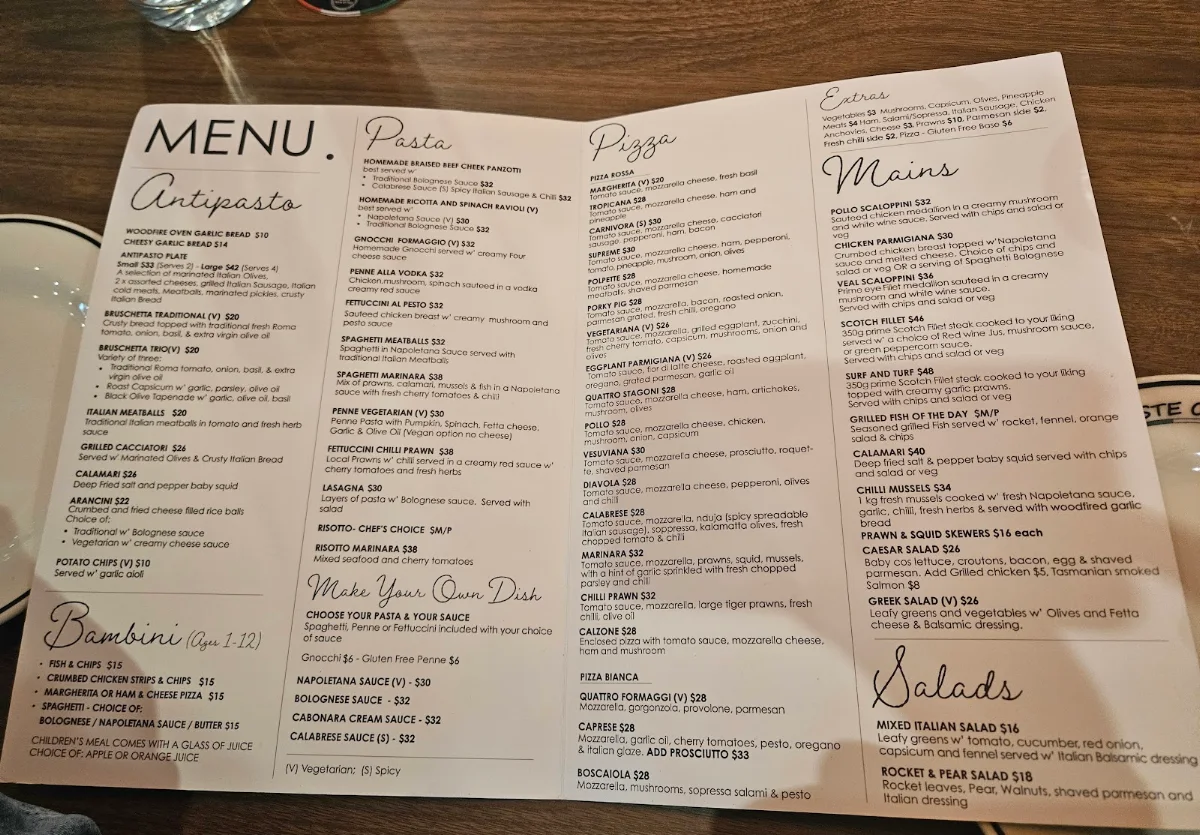 MENU.
Antipasto
WOODFIRE OVEN GARLIC BREAD $10
CHEESY GARLIC BREAD $14
ANTIPASTO PLATE
Small $33 (Serves 2) - Large $42 (Serves 4)
A selection of marinated Italian Olives,
2 x assorted cheeses, grilled Italian Sausage, Italian
cold meats, Meatballs, marinated pickles, crusty
Italian Bread
BRUSCHETTA TRADITIONAL (V) $20
Crusty bread topped with traditional fresh Roma
tomato, onion, basil, & extra virgin olive oil
BRUSCHETTA TRIO(V) $20
Variety of three:
• Traditional Roma tomato, onion, basil, & extra
virgin olive oil
• Roast Capsicum w' garlic, parsley, olive oil
• Black Olive Tapenade w' garlic, olive oil, basil
ITALIAN MEATBALLS $20
Traditional Italian meatballs in tomato and fresh herb
sauce
GRILLED CACCIATORI $26
Served w' Marinated Olives & Crusty Italian Bread
CALAMARI $26
Deep Fried salt and pepper baby squid
ARANCINI $22
Crumbed and fried cheese filled rice balls
Choice of:
• Traditional w' Bolognese sauce
• Vegetarian w' creamy cheese sauce
POTATO CHIPS (V) $10
Served w' garlic aioli
Bambini (Ages 1-12)
• FISH & CHIPS $15
• CRUMBED CHICKEN STRIPS & CHIPS $15
• MARGHERITA OR HAM & CHEESE PIZZA $15
• SPAGHETTI - CHOICE OF:
BOLOGNESE / NAPOLETANA SAUCE / BUTTER $15
CHILDREN'S MEAL COMES WITH A GLASS OF JUICE
CHOICE OF: APPLE OR ORANGE JUICE
Pasta
HOMEMADE BRAISED BEEF CHEEK PANZOTTI
best served w'
• Traditional Bolognese Sauce $32
• Calabrese Sauce (S) Spicy Italian Sausage & Chilli $32
HOMEMADE RICOTTA AND SPINACH RAVIOLI (V)
best served w'
• Napoletana Sauce (V) $30
• Traditional Bolognese Sauce $32
GNOCCHI FORMAGGIO (V) $32
Homemade Gnocchi served w' creamy Four
cheese sauce
PENNE ALLA VODKA $32
Chicken,mushroom, spinach sauteed in a vodka
creamy red sauce
FETTUCINI AL PESTO $32
Sauteed chicken breast w' creamy mushroom and
pesto sauce
SPAGHETTI MEATBALLS $32
Spaghetti in Napoletana Sauce served with
traditional Italian Meatballs
SPAGHETTI MARINARA $38
Mix of prawns, calamari, mussels & fish in a Napoletana
sauce with fresh cherry tomatoes & chilli
PENNE VEGETARIAN (V) $30
Penne Pasta with Pumpkin, Spinach, Fetta cheese,
Garlic & Olive Oil (Vegan option no cheese)
FETTUCCINI CHILLI PRAWN $38
Local Prawns w' chilli served in a creamy red sauce w'
cherry tomatoes and fresh herbs
LASAGNA $30
Layers of pasta w' Bolognese sauce. Served with
salad
RISOTTO- CHEF'S CHOICE $M/P
RISOTTO MARINARA $38
Mixed seafood and cherry tomatoes
Make Your Own Dish
CHOOSE YOUR PASTA & YOUR SAUCE
Spaghetti, Penne or Fettuccini included with your choice
of sauce
Gnocchi $6 - Gluten Free Penne $6
NAPOLETANA SAUCE (V) - $30
BOLOGNESE SAUCE - $32
CABONARA CREAM SAUCE - $32
CALABRESE SAUCE (S) - $32
(V) Vegetarian; (S) Spicy
Pizza
PIZZA ROSSA
MARGHERITA (V) $20
Tomato sauce, mozzarella cheese, fresh basil
TROPICANA $28
Tomato sauce, mozzarella cheese, ham and
pineapple
CARNIVORA (S) $30
Tomato sauce, mozzarella cheese, cacciatori
sausage, pepperoni, ham, bacon
SUPREME $30
Tomato sauce, mozzarella cheese, ham, pepperoni,
tomato, pineapple, mushroom, onion, olives
POLPETTE $28
Tomato sauce, mozzarella cheese, homemade
meatballs, shaved parmesan
PORKY PIG $28
Tomato sauce, mozzarella, bacon, roasted onion,
parmesan grated, fresh chilli, oregano
VEGETARIANA (V) $26
Tomato sauce, mozzarella, grilled eggplant, zucchini,
fresh cherry tomato, capsicum, mushrooms, onion and
olives
EGGPLANT PARMIGIANA (V) $26
Tomato sauce, for di latte cheese, roasted eggplant,
oregano, grated parmesan, garlic oil
QUATTRO STAGONI $28
Tomato sauce, mozzarella cheese, ham, artichokes,
mushroom, olives
POLLO $28
Tomato sauce, mozzarella cheese, chicken,
mushroom, onion, capsicum
VESUVIANA $30
Tomato sauce, mozzarella cheese, prosciutto, roquet-
te, shaved parmesan
DIAVOLA $28
Tomato sauce, mozzarella cheese, pepperoni, olives
and chilli
CALABRESE $28
Tomato sauce, mozzarella, nduja (spicy spreadable
Italian sausage), soppressa, kalamatta olives, fresh
chopped tomato & chilli
MARINARA $32
Tomato sauce, mozzarella, prawns, squid, mussels,
with a hint of garlic sprinkled with fresh chopped
parsley and chilli
CHILLI PRAWN $32
Tomato sauce, mozzarella, large tiger prawns, fresh
chilli, olive oil
CALZONE $28
Enclosed pizza with tomato sauce, mozzarella cheese,
ham and mushroom
PIZZA BIANCA
QUATTRO FORMAGGI (V) $28
Mozzarella, gorgonzola, provolone, parmesan
CAPRESE $28
Mozzarella, garlic oil, cherry tomatoes, pesto, oregano
& Italian glaze. ADD PROSCIUTTO $33
BOSCAIOLA $28
Mozzarella, mushrooms, sopressa salami & pesto
Extras
Vegetables $3 Mushrooms, Capsicum, Olives, Pineapple
Meats $4 Ham, Salami/Sopressa, Italian Sausage, Chicken
Anchovies, Cheese $3, Prawns $10, Parmesan side $2,
Fresh chilli side $2, Pizza - Gluten Free Base $6
Mains
POLLO SCALOPPINI $32
Sauteed chicken medallion in a creamy mushroom
and white wine sauce. Served with chips and salad or
veg
CHICKEN PARMIGIANA $30
Crumbed chicken breast topped w'Napoletana
sauce and melted cheese. Choice of chips and
salad or veg OR a serving of Spaghetti Bolognese
VEAL SCALOPPINI $36
Prime eye Filet medallion sauteed in a creamy
mushroom and white wine sauce.
Served with chips and salad or veg
SCOTCH FILLET $46
350g prime Scotch Fillet steak cooked to your liking
served w' a choice of Red wine Jus, mushroom sauce,
or green peppercorn sauce.
Served with chips and salad or veg
SURF AND TURF $48
350g prime Scotch Fillet steak cooked to your liking
topped with creamy garlic prawns.
Served with chips and salad or veg
GRILLED FISH OF THE DAY $M/P
Seasoned grilled Fish served w' rocket, fennel, orange
salad & chips
CALAMARI $40
Deep fried salt & pepper baby squid served with chips
and salad or veg
CHILLI MUSSELS $34
1 kg fresh mussels cooked w' fresh Napoletana sauce,
garlic, chilli, fresh herbs & served with woodfired garlic
bread
PRAWN & SQUID SKEWERS $16 each
CAESAR SALAD $26
Baby cos lettuce, croutons, bacon, egg & shaved
parmesan. Add Grilled chicken $5, Tasmanian smoked
Salmon $8
GREEK SALAD (V) $26
Leafy greens and vegetables w' Olives and Fetta
cheese & Balsamic dressing.
Salads
MIXED ITALIAN SALAD $16
Leafy greens w' tomato, cucumber, red onion,
capsicum and fennel served w' Italian Balsamic dressing
ROCKET & PEAR SALAD $18
Rocket leaves, Pear, Walnuts, shaved parmesan and
Italian dressing